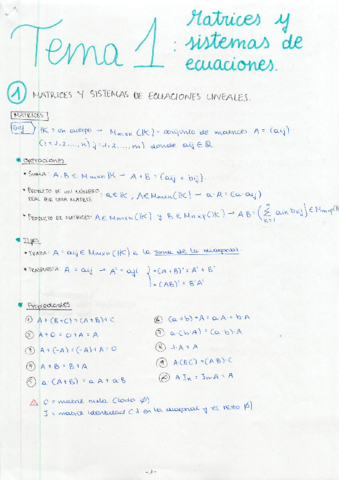 Tema 1: Matrices y
sistemas de
ecuaciones.
1 MATRICES Y SISTEMAS DE ECUACIONES LINEALES.
MATRICES
Def K = un cuerpo → Mmxn (K) = conjunto de matrices A = (aij)
(i = 1, 2, ..., m; j = 1, 2, ..., n) donde aij ∈
Operaciones
• SUMA: A, B ∈ Mmxn K → A + B = (aij + bij)
• PRODUCTO DE UN NÚMERO REAL POR UNA MATRIZ: a ∈ K, A ∈ Mmxn (K) → a·A = (a·aij)
• PRODUCTO DE MATRICES: A ∈ Mmxn (K) y B ∈ Mnxp (K) → AB = (Σ aik bkj) ∈ Mmxp (K)
Tipos
• TRAZA: A = aij ∈ Mnxn (K) a la suma de la diagonal.
• TRASPUESTA: A = aij → A' = aji { • (A + B)' = A' + B'
• (AB)' = B'A'
Propiedades
1 A + (B + C) = (A + B) + C
2 A + 0 = 0 + A = A
3 A + (-A) = (-A) + A = 0
4 A + B = B + A
5 a·(A + B) = aA + aB
6 (a + b)·A = a·A + b·A
7 a·(b·A) = (a·b)·A
8 1·A = A
9 A(BC) = (AB)·C
10 A In = Im A = A
⚠ 0 = matriz nula (todo 0)
I = matriz identidad (1 en la diagonal y el resto 0)
-1-